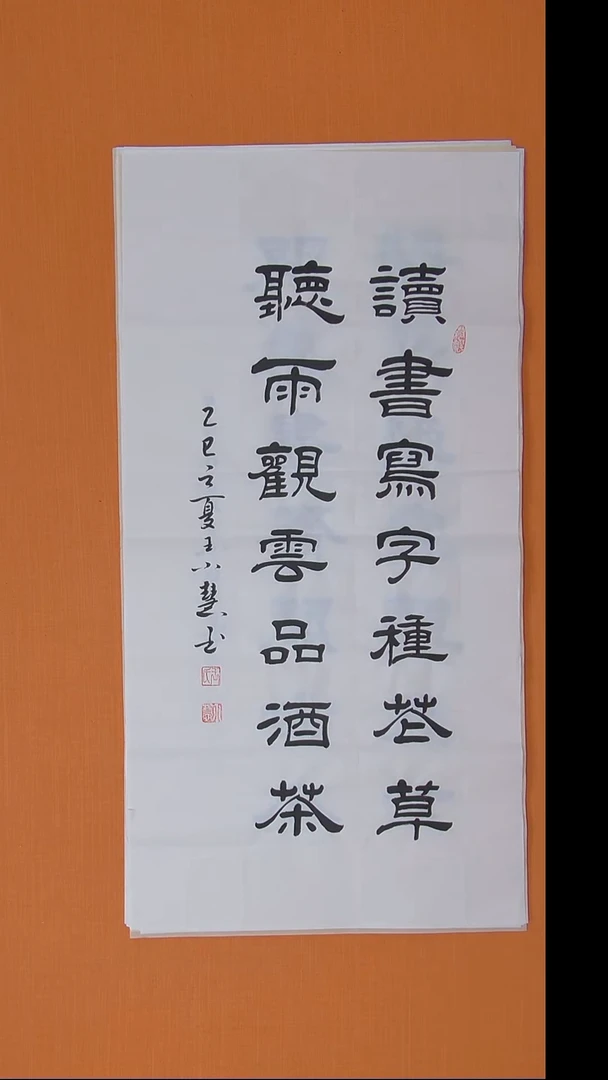 讀書寫字種花草
聽雨觀雲品酒茶
乙巳之夏王小慧书